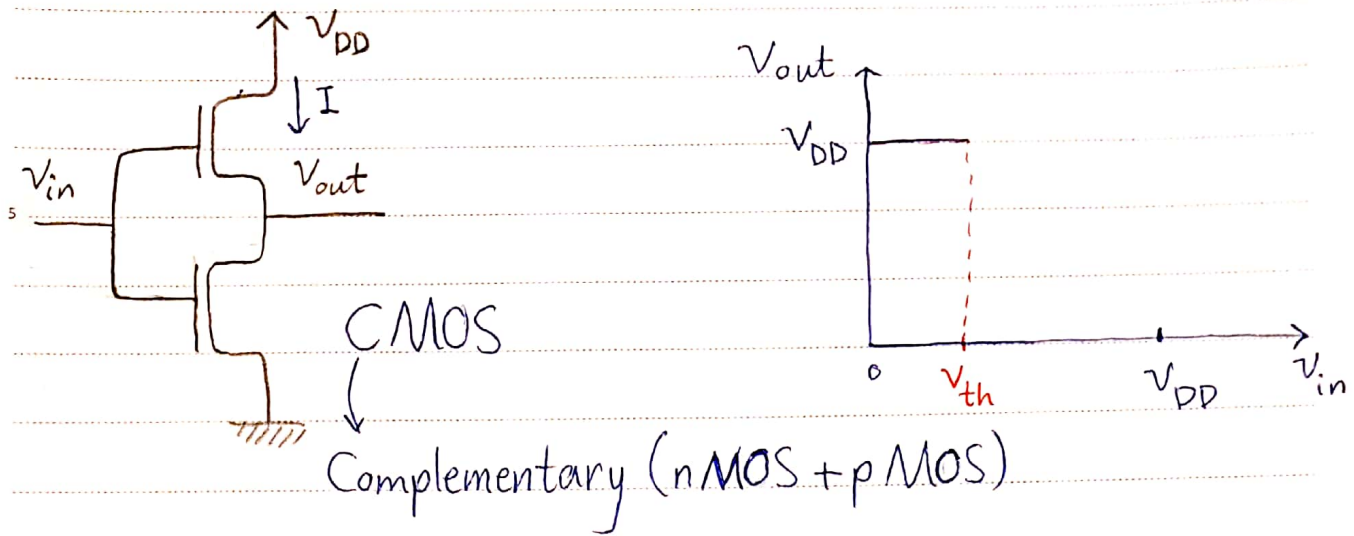 V_DD
I
V_in
V_out
5
CMOS
Complementary (nMOS + pMOS)
V_out
V_DD
0
V_th
V_DD
V_in